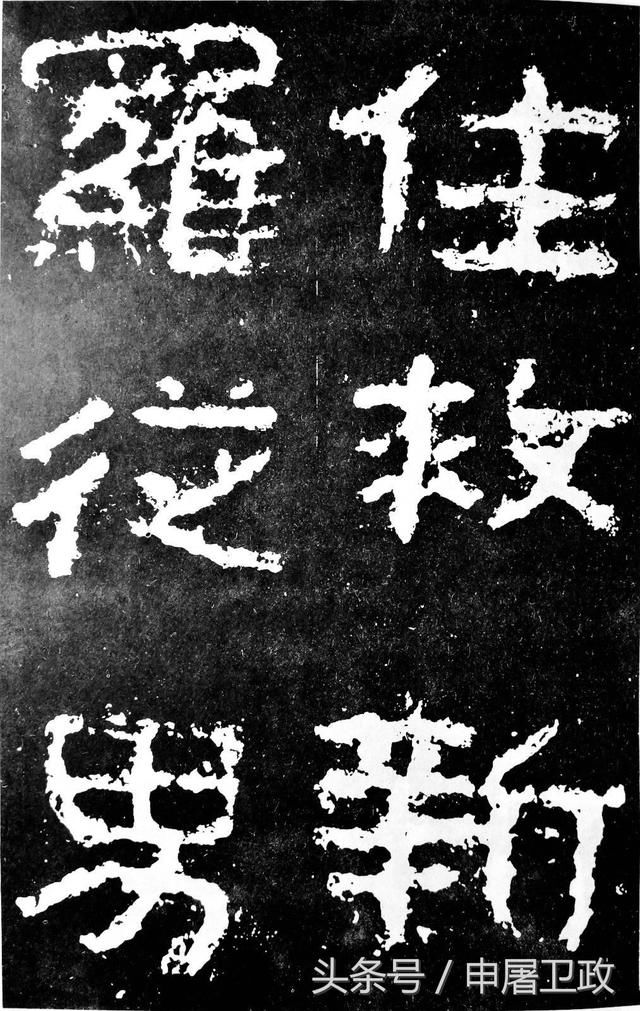 往救新
羅從男
头条号 / 申屠卫政